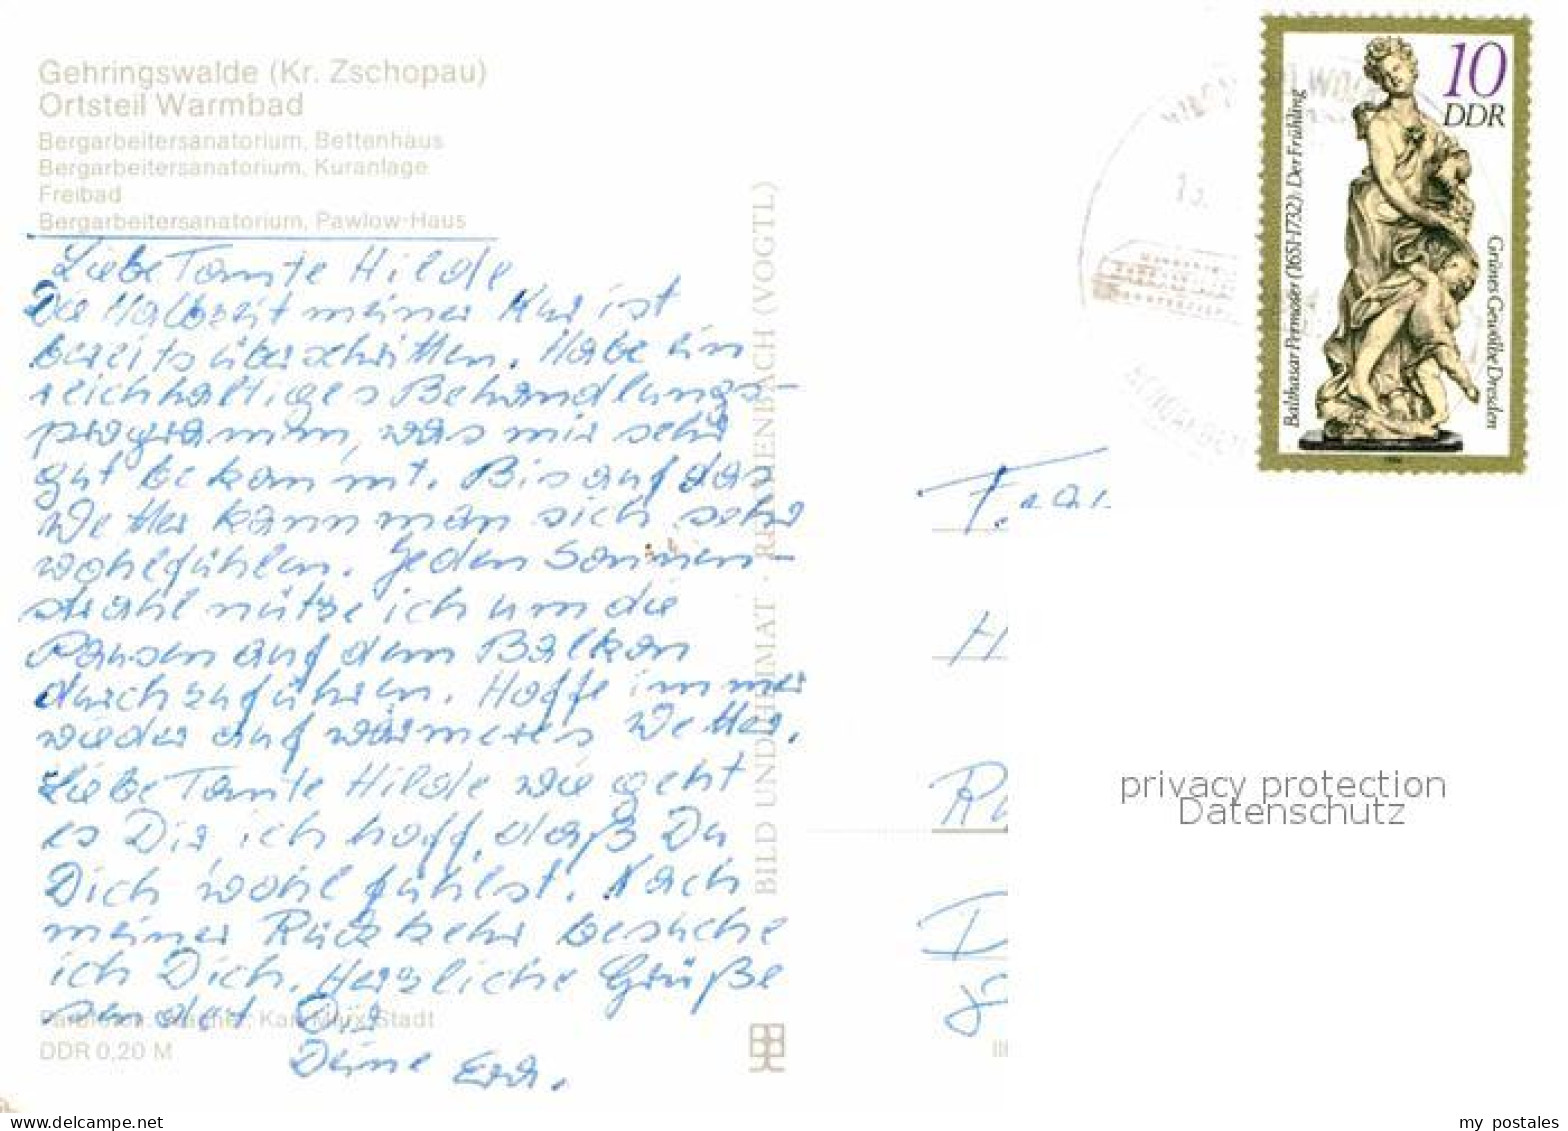 Gehringswalde (Kr. Zschopau)
Ortsteil Warmbad
Bergarbeitersanatorium, Bettenhaus
Bergarbeitersanatorium, Kuranlage
Freibad
Bergarbeitersanatorium, Pawlow-Haus
Liebe Tante Hilde
Die Halbzeit meiner Kur ist
bereits überschritten. Habe ein
reichhaltiges Behandlungs-
programm, was mir sehr
gut bekommt. Bis auf das
Wetter kann man sich sehr
wohlfühlen. Jeden Sonnen-
strahl nütze ich um die
Pausen auf dem Balkon
durchzuführen. Hoffe immer
wieder auf wärmeres Wetter.
Liebe Tante Hilde wie geht
es Dir, ich hoff, daß Du
Dich wohl fühlst. Nach
meiner Rückkehr besuche
ich Dich. Herzliche Grüße
sendet Dir
Deine
Karl-Marx-Stadt
DDR 0,20 M
BILD UND HEIMAT · REICHENBACH (VOGTL)
10
DDR
Balthasar Permoser (1651-1732): Der Frühling
Grünes Gewölbe Dresden
Frau
H
I
privacy protection
Datenschutz
my postales